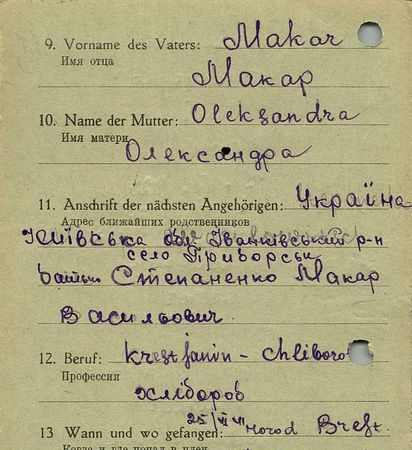 9. Vorname des Vaters: Makar
Имя отца
Макар
10. Name der Mutter: Oleksandra
Имя матери
Олександра
11. Anschrift der nächsten Angehörigen: Україна
Адрес ближайших родственников
Київська обл Іванківський р-н
село Приборськ
батько Степаненко Макар
Васильович
12. Beruf: krestjanin - chliborob
Профессия
хлібороб
25/VII 41
13 Wann und wo gefangen: Horod Brest
Когда и где попал в плен